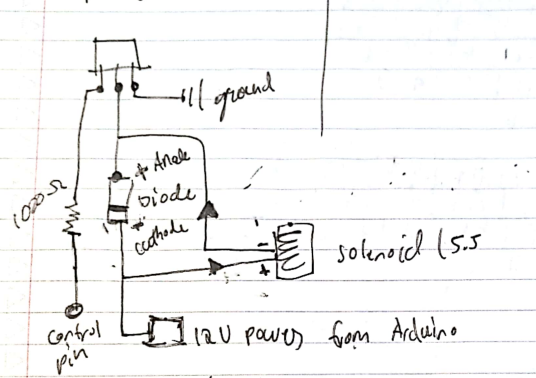 ground
+ Anode
1000Ω
Diode
cathode
-
+
solenoid (5.5
control
pin
12V power from Arduino